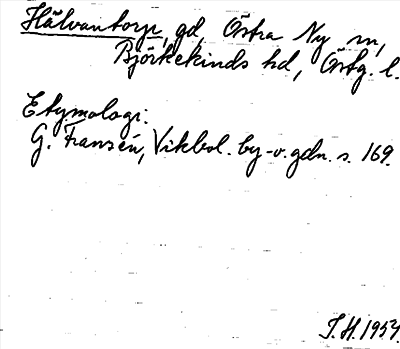 Hälvantorp, gd, Östra Ny sn,
Björkekinds hd, Östg. l.
Etymologi:
G. Franzén, Vikbol. by- o. gdn. s. 169.
I.H. 1954.